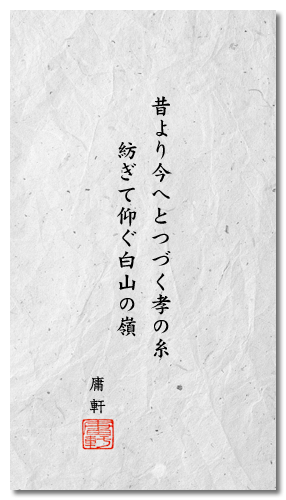 昔より今へとつづく孝の糸
紡ぎて仰ぐ白山の嶺
庸軒
庸軒